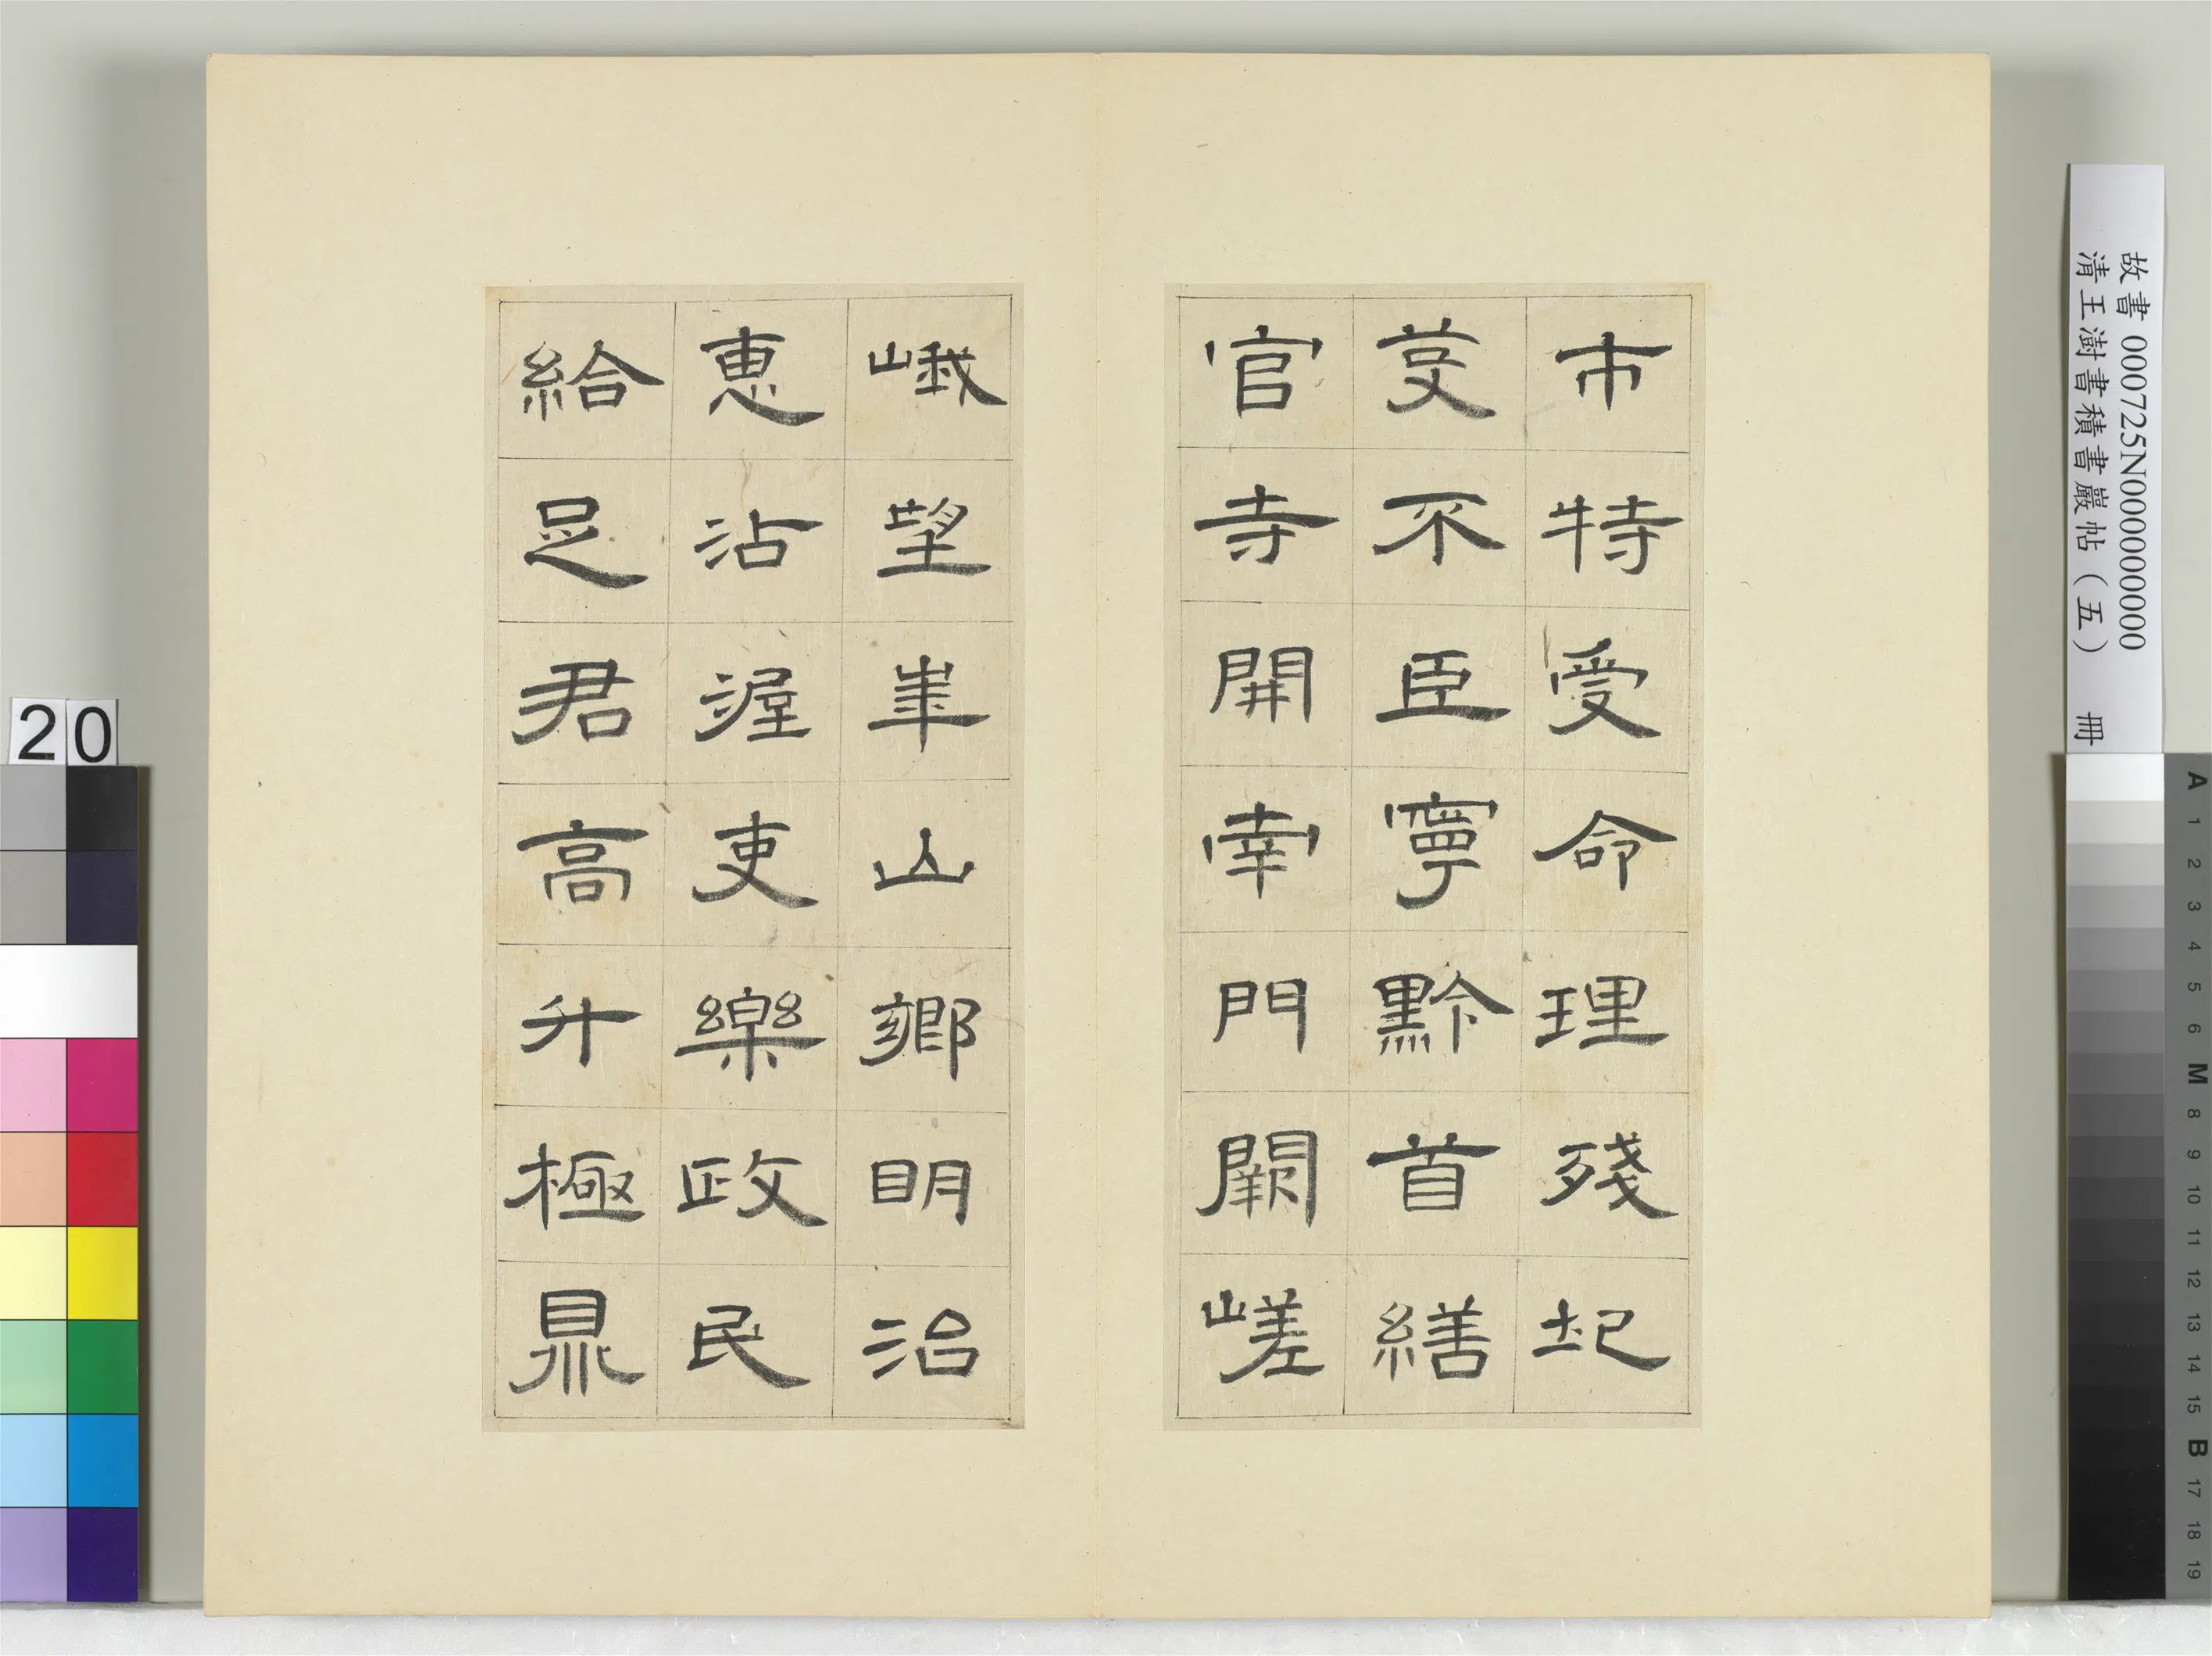 故書 000725N000000000
清王澍書積書巖帖（五） 冊
市特受命理殘圮
芟不臣寧黔首繕
官寺開南門闕嵯
峨望華山鄉眀治
惠沾渥吏樂政民
給足君高升極鼎
20
A 1 2 3 4 5 6 M 8 9 10 11 12 13 14 15 B 17 18 19